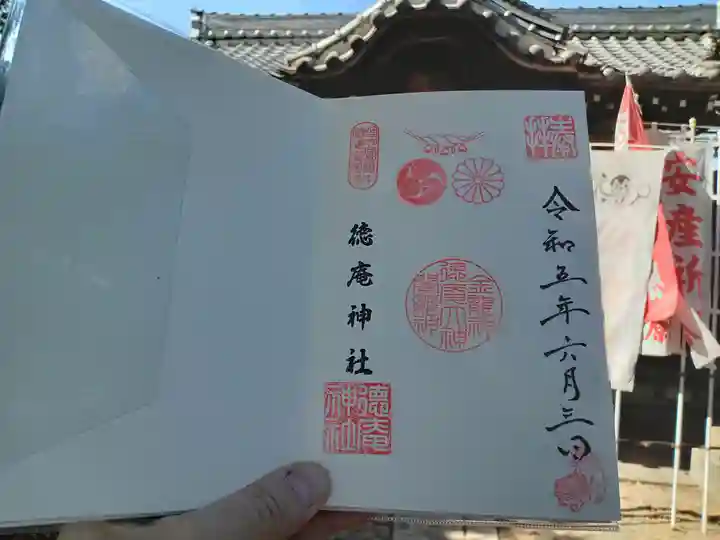 奉拝
令和五年六月三日
徳庵神社
徳庵神社
安産祈